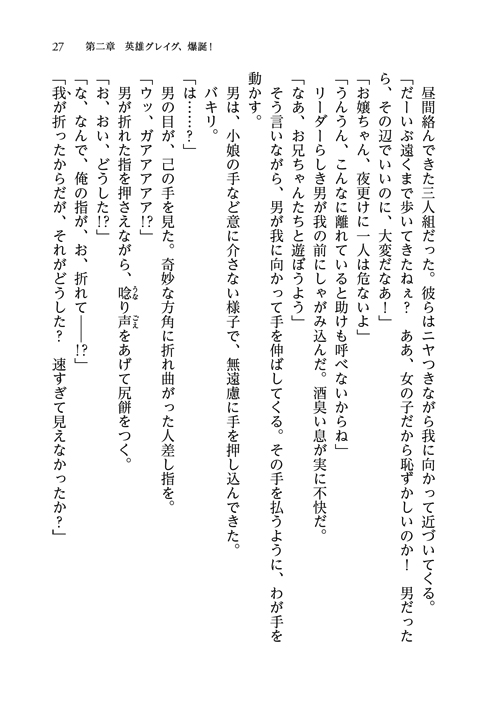 27　第二章　英雄グレイグ、爆誕！
　昼間絡んできた三人組だった。彼らはニヤつきながら我に向かって近づいてくる。
「だーいぶ遠くまで歩いてきたねぇ？　ああ、女の子だから恥ずかしいのか！　男だった
ら、その辺でいいのに、大変だなあ！」
「お嬢ちゃん、夜更けに一人は危ないよ」
「うんうん、こんなに離れていると助けも呼べないからね」
　リーダーらしき男が我の前にしゃがみ込んだ。酒臭い息が実に不快だ。
「なあ、お兄ちゃんたちと遊ぼうよう」
　そう言いながら、男が我に向かって手を伸ばしてくる。その手を払うように、わが手を
動かす。
　男は、小娘の手など意に介さない様子で、無遠慮に手を押し込んできた。
　バキリ。
「は……？」
　男の目が、己の手を見た。奇妙な方角に折れ曲がった人差し指を。
「ウッ、ガアアアアア!?」
　男が折れた指を押さえながら、唸り声をあげて尻餅をつく。
「お、おい、どうした!?」
「な、なんで、俺の指が、お、折れて――!?」
「我が折ったからだが、それがどうした？　速すぎて見えなかったか？」